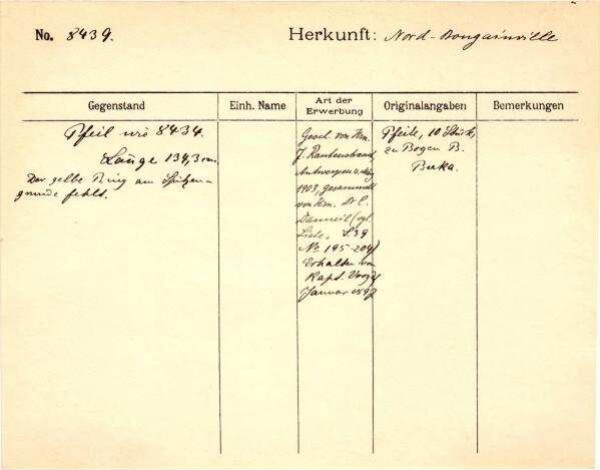 No. 8439.
Herkunft: Nord-Bougainville
Gegenstand
Einh. Name
Art der Erwerbung
Originalangaben
Bemerkungen
Pfeil wie 8434.
Länge 139,3 cm.
Der gelbe Ring am Spitzen-
grunde fehlt.
Gesch. von Hrn.
J.
Antwerpen
1903, gesammelt
von Hrn. Dr C.
Danneil (vgl.
Liste, S. 39
No 195-204)
Erhalten von
Kapt.
Januar 1897
Pfeile, 10 Stück,
zu Bogen B.
Buka.